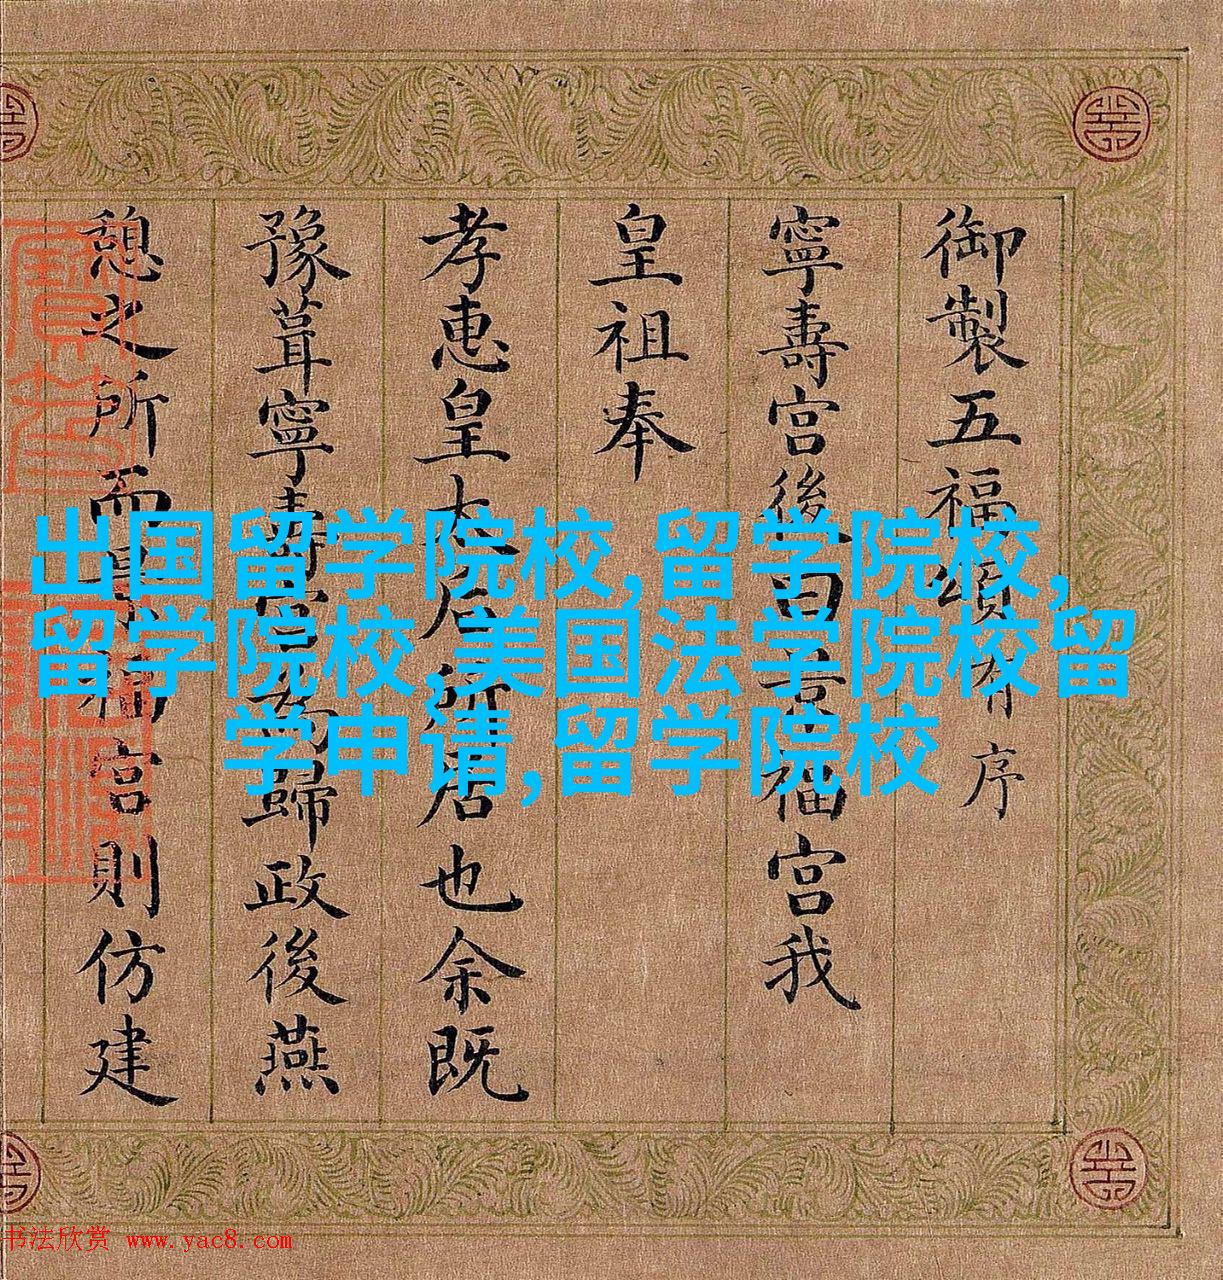 御製五福頌有序
寧壽宮後曰景福宮我
皇祖奉
孝惠皇太后所居也余既
豫葺寧壽宮為歸政後燕
憩之所而景福宮則仿建
出国留学院校,留学院校,
留学院校,美国法学院校留
学申请,留学院校
书法欣赏 www.yac8.com